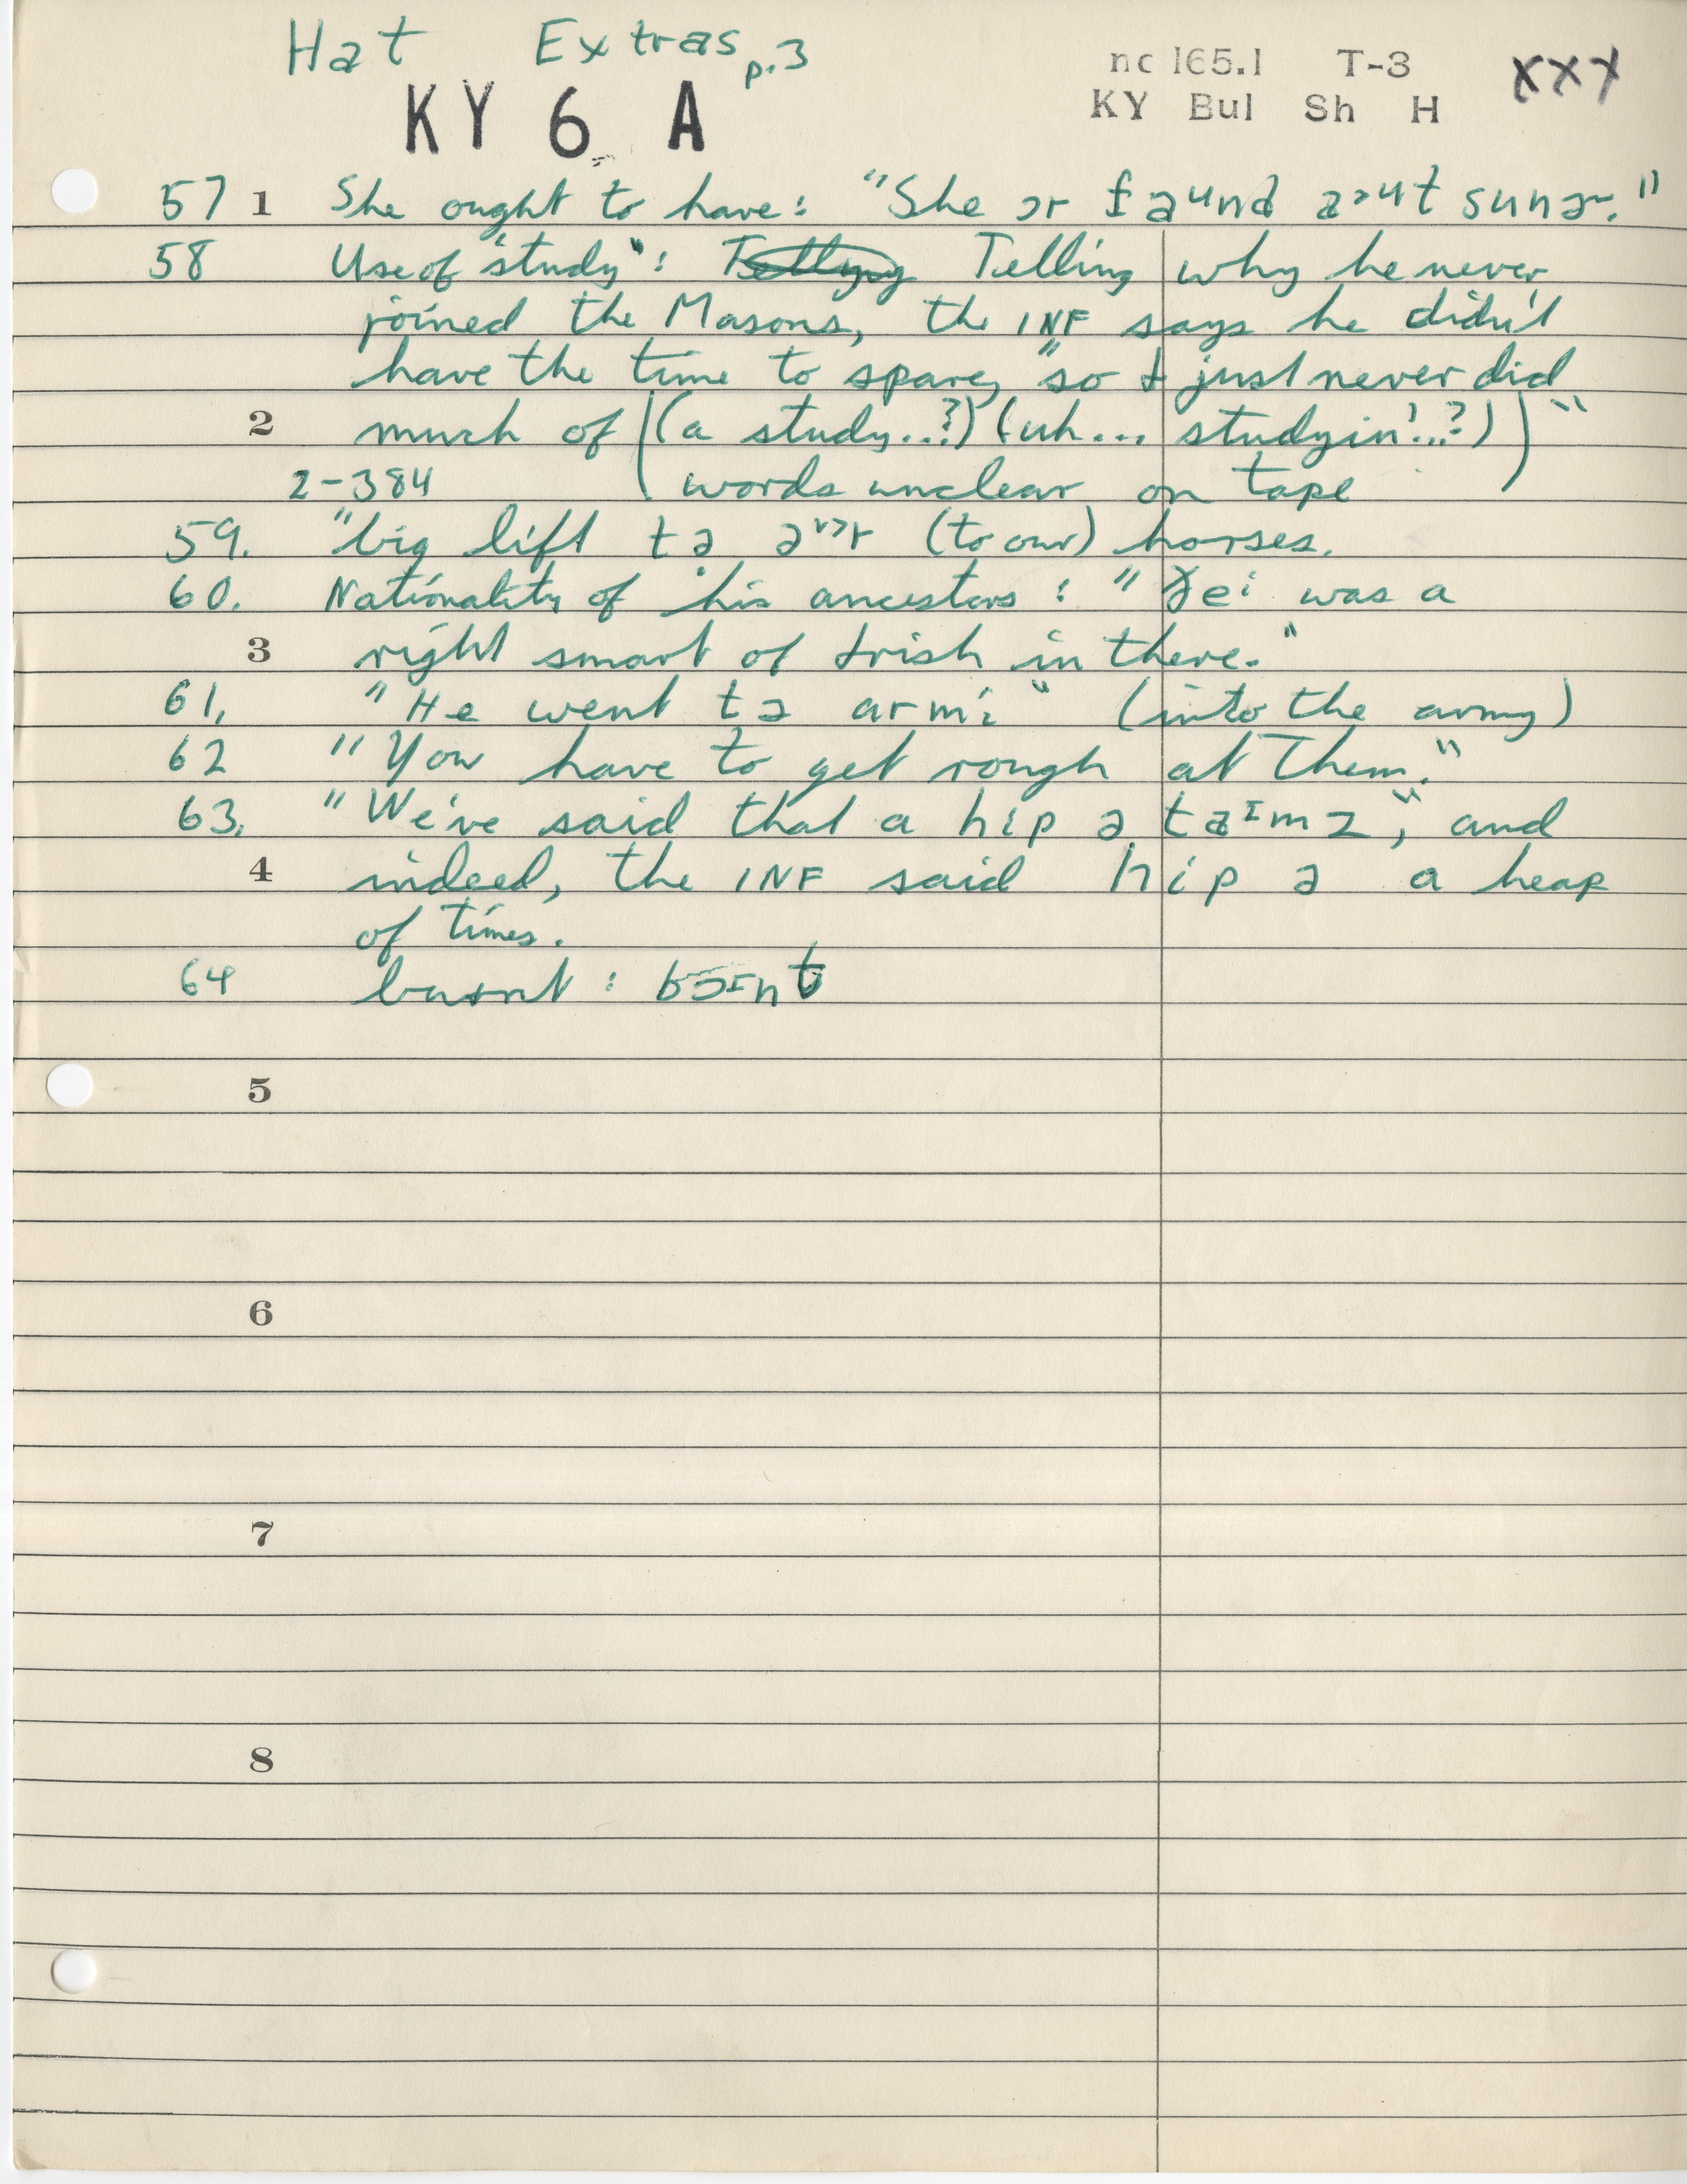 Hat Extras p.3
nc 165.1 T-3 xxx
KY 6 A
KY Bul Sh H
57 1 She ought to have: "She ɔr faᵘnd aᵓᵘt sunɚ."
58 Use of "study": Telling why he never
joined the Masons, the INF says he didn't
have the time to spare, "so I just never did
2 much of (a study..?) (uh... studyin'..?)"
2-384 words unclear on tape
59. "big lift tə ər (to our) horses.
60. Nationality of his ancestors: "ðeⁱ was a
3 right smart of Irish in there."
61. "He went tə armi" (into the army)
62 "You have to get rough at them."
63. "We've said that a hip ə taᶦmz", and
4 indeed, the INF said hip ə a heap
of times.
64 burnt:
5
6
7
8